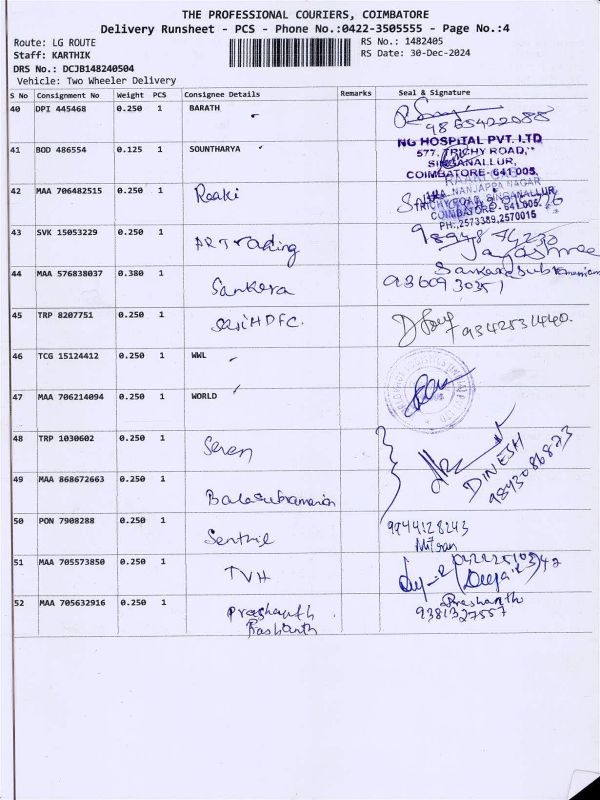 THE PROFESSIONAL COURIERS, COIMBATORE
Delivery Runsheet - PCS - Phone No.:0422-3505555 - Page No.:4
Route: LG ROUTE
RS No.: 1482405
Staff: KARTHIK
RS Date: 30-Dec-2024
DRS No.: DCJB148240504
Vehicle: Two Wheeler Delivery
S No Consignment No Weight PCS Consignee Details Remarks Seal & Signature
40 DPI 445468 0.250 1 BARATH
9865422088
41 BOD 486554 0.125 1 SOUNTHARYA
NG HOSPITAL PVT. LTD
577, TRICHY ROAD,
SINGANALLUR,
COIMBATORE - 641 005.
42 MAA 706482515 0.250 1 Raaki
NANJAPPA NAGAR
TRICHY ROAD, SINGANALLUR,
COIMBATORE - 641 005.
PH:,2573389,2570016
43 SVK 15053229 0.250 1 AR Trading
Jayashree
44 MAA 576838037 0.380 1 Sankara
Sankarasubramanian
9360930351
45 TRP 8207751 0.250 1 HDFC.
9342531440.
46 TCG 15124412 0.250 1 WWL
47 MAA 706214094 0.250 1 WORLD
48 TRP 1030602 0.250 1 Seren
DINESH
9843086873
49 MAA 868672663 0.250 1 Balasubramanian
50 PON 7908288 0.250 1 Senthil
9944128243
Mitran
51 MAA 705573850 0.250 1 TVH
52 MAA 705632916 0.250 1 Prashanth
Prashanth
9381327557